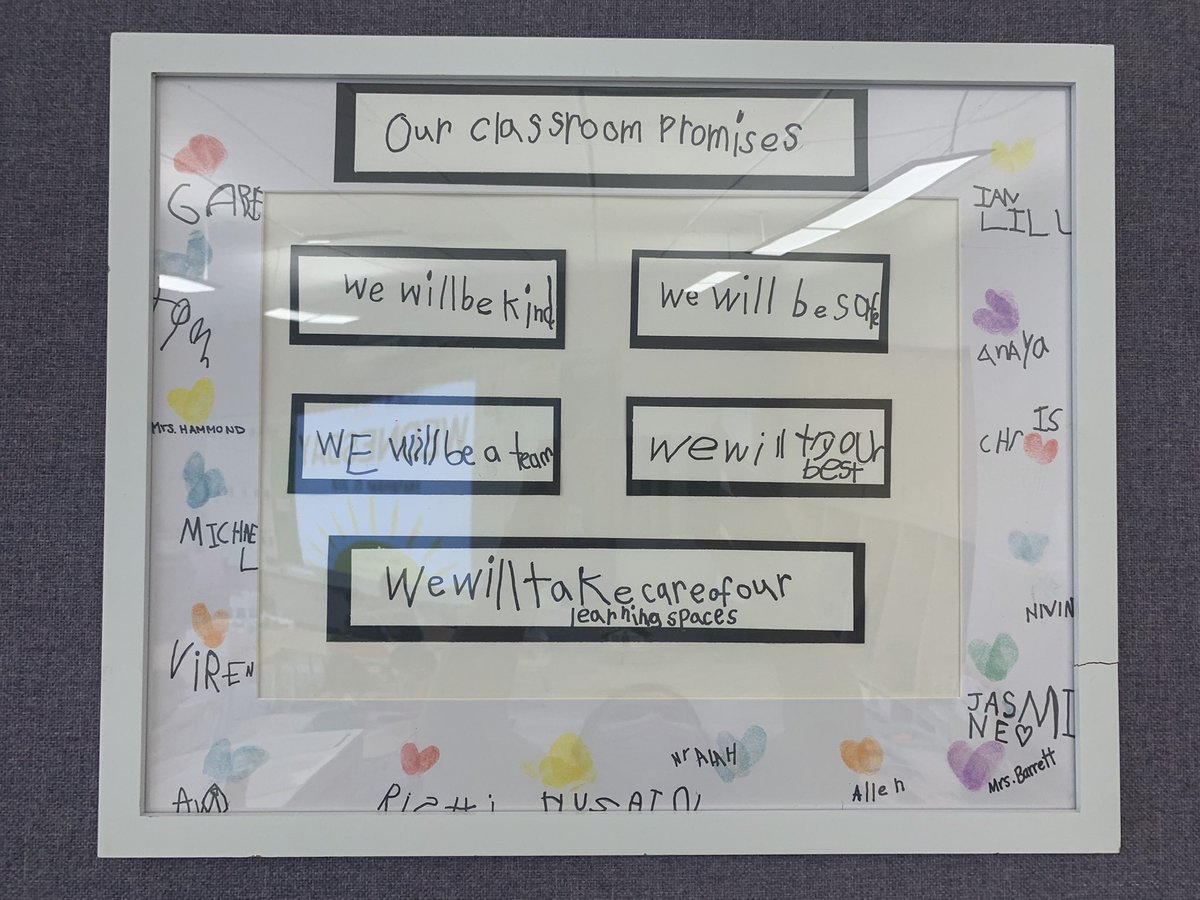 Our classroom Promises
We will be kind
We will be safe
WE will be a team
We will try our
best
We will take care of our
learning spaces
GABE
MRS. HAMMOND
MICHAE
L
VIREN
IAN
LILL
ANAYA
CHRIS
NIVIN
JASMI
NE
Mrs. Barrett
Allen
WEDNESDAY